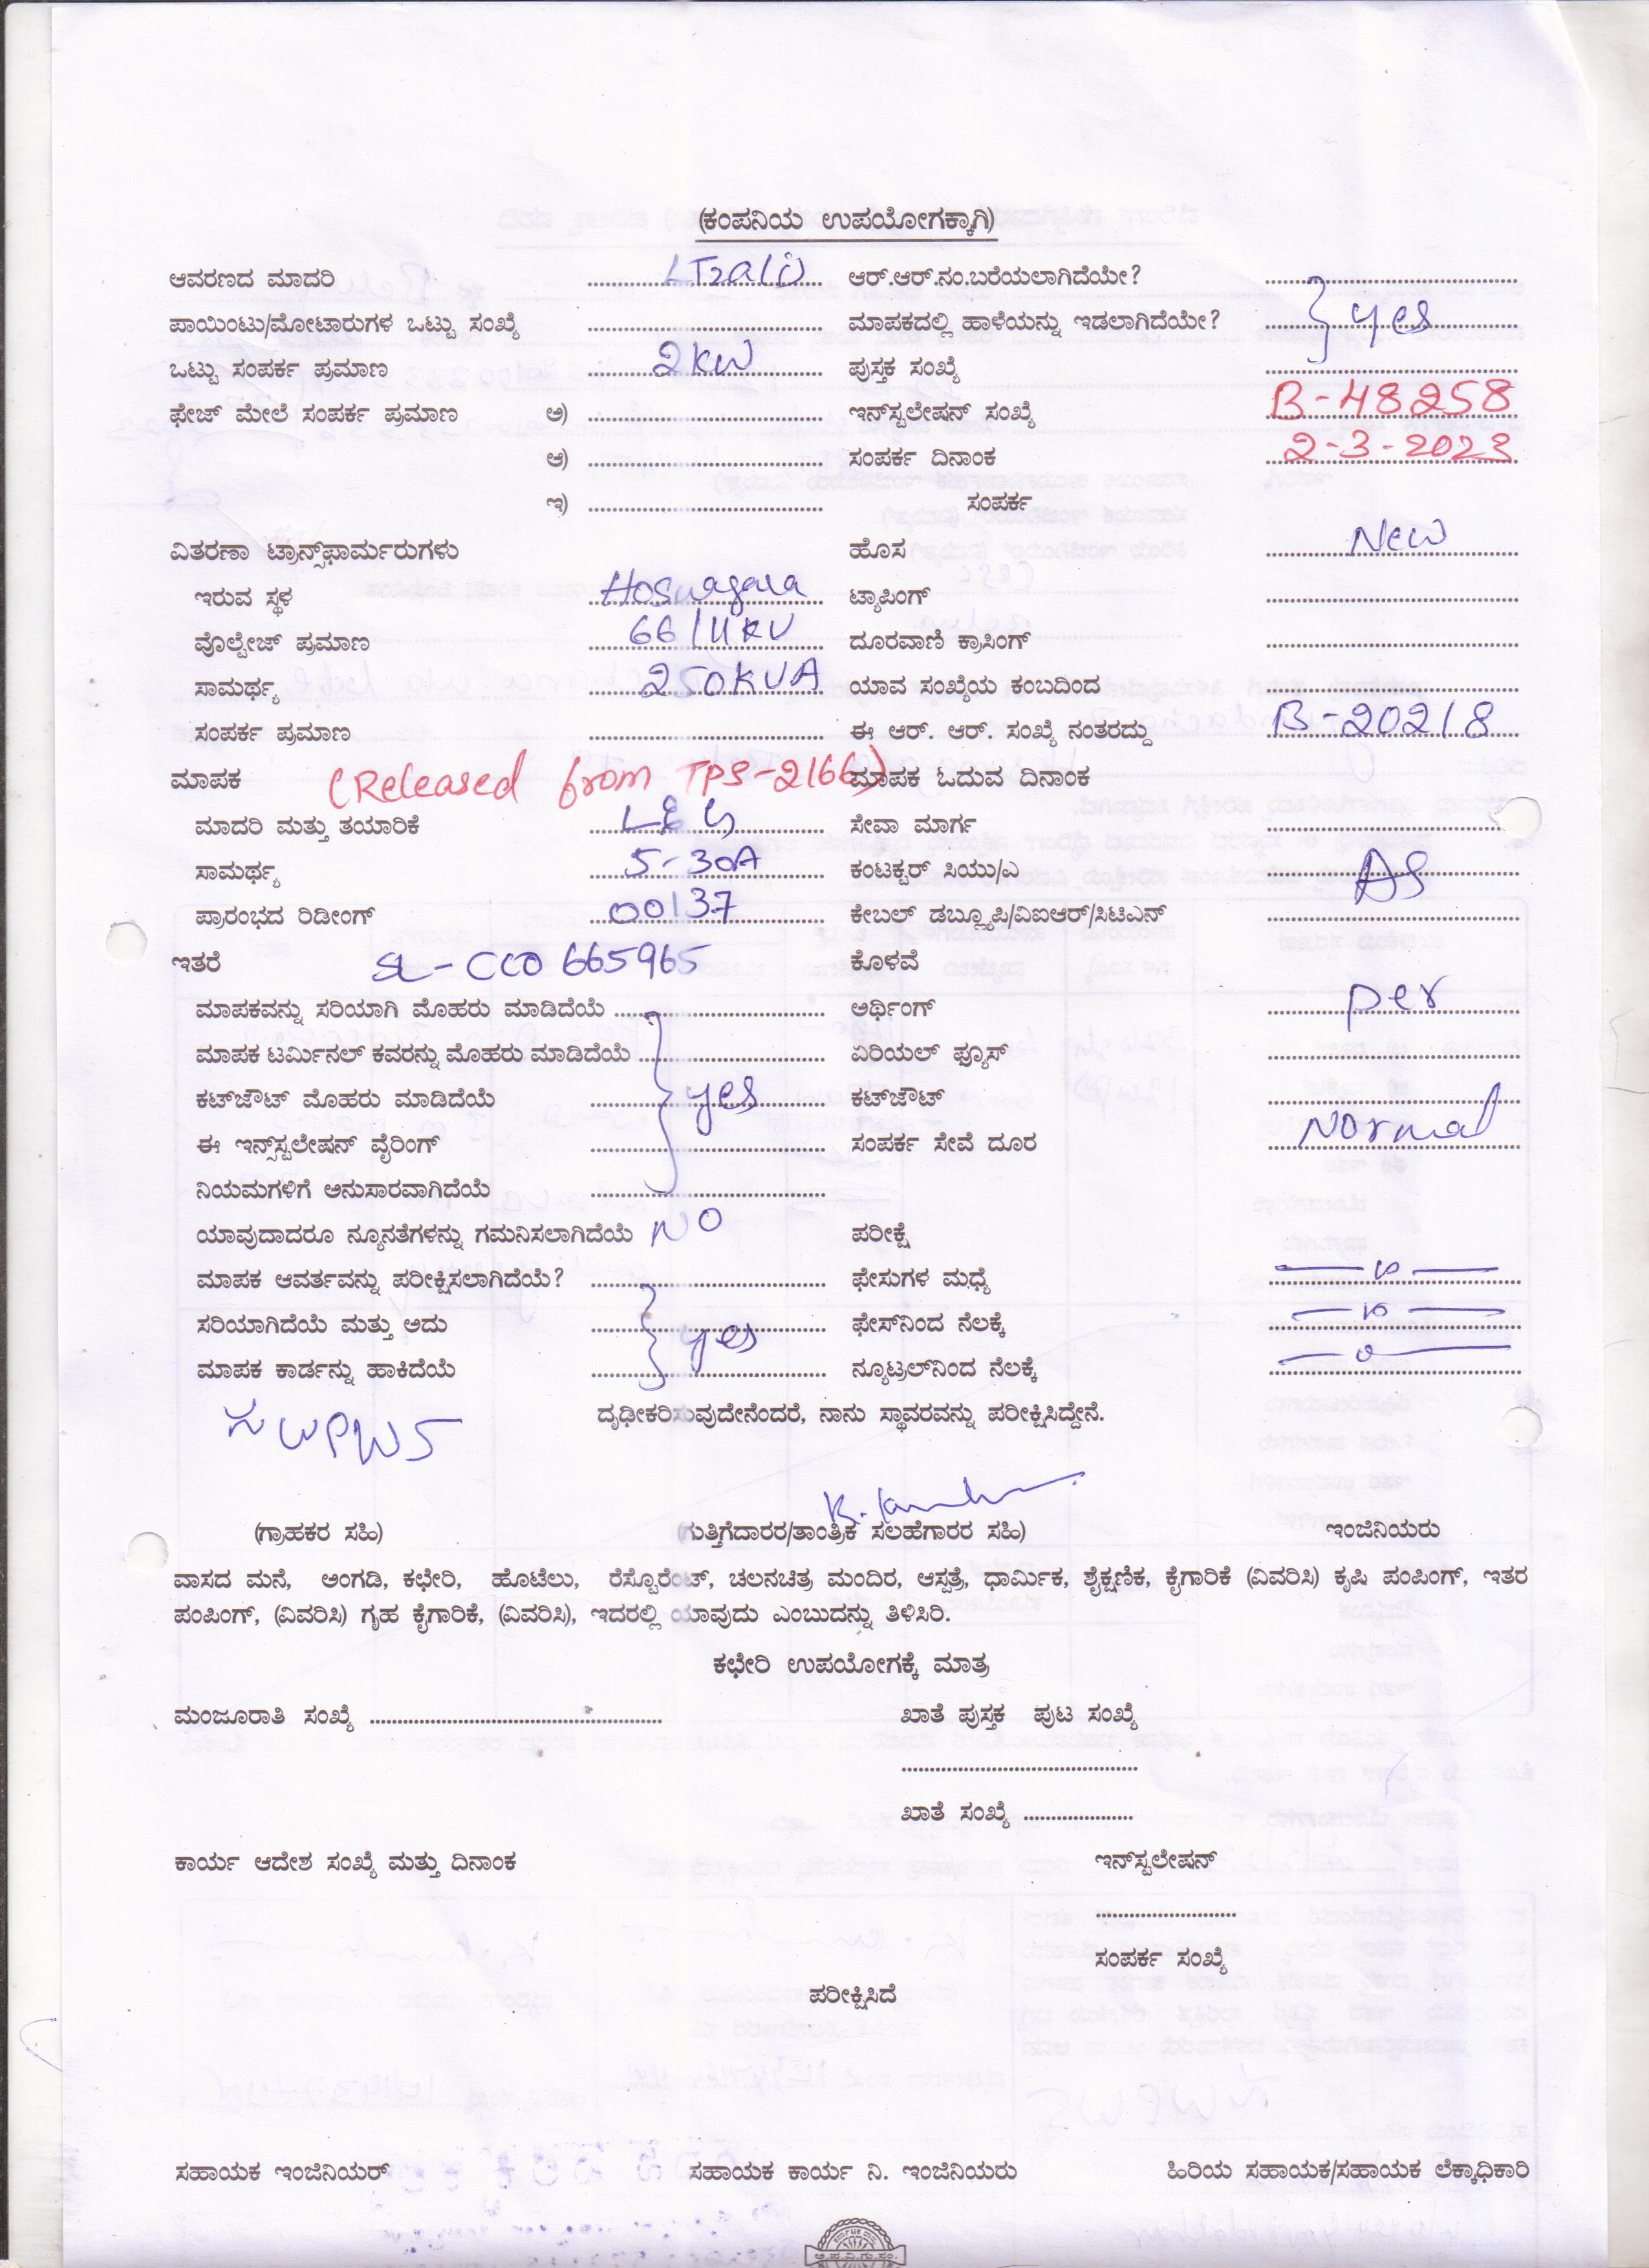 (ಕಂಪನಿಯ ಉಪಯೋಗಕ್ಕಾಗಿ)
ಆವರಣದ ಮಾದರಿ LT2a(i) ಆರ್.ಆರ್.ನಂ.ಬರೆಯಲಾಗಿದೆಯೇ?
ಪಾಯಿಂಟು/ಮೋಟಾರುಗಳ ಒಟ್ಟು ಸಂಖ್ಯೆ ಮಾಪಕದಲ್ಲಿ ಹಾಳೆಯನ್ನು ಇಡಲಾಗಿದೆಯೇ? yes
ಒಟ್ಟು ಸಂಪರ್ಕ ಪ್ರಮಾಣ 2KW ಪುಸ್ತಕ ಸಂಖ್ಯೆ
ಫೇಜ್ ಮೇಲೆ ಸಂಪರ್ಕ ಪ್ರಮಾಣ ಅ) ಇನ್‌ಸ್ಟಲೇಷನ್ ಸಂಖ್ಯೆ B-48258
ಆ) ಸಂಪರ್ಕ ದಿನಾಂಕ 2-3-2023
ಇ) ಸಂಪರ್ಕ
ವಿತರಣಾ ಟ್ರಾನ್ಸ್‌ಫಾರ್ಮರುಗಳು ಹೊಸ New
ಇರುವ ಸ್ಥಳ Hosnagara ಟ್ಯಾಪಿಂಗ್
ವೊಲ್ಟೇಜ್ ಪ್ರಮಾಣ 66/11KV ದೂರವಾಣಿ ಕ್ರಾಸಿಂಗ್
ಸಾಮರ್ಥ್ಯ 250KVA ಯಾವ ಸಂಖ್ಯೆಯ ಕಂಬದಿಂದ
ಸಂಪರ್ಕ ಪ್ರಮಾಣ ಈ ಆರ್. ಆರ್. ಸಂಖ್ಯೆ ನಂತರದ್ದು B-20218
ಮಾಪಕ (Released from TPS-2166) ಮಾಪಕ ಓದುವ ದಿನಾಂಕ
ಮಾದರಿ ಮತ್ತು ತಯಾರಿಕೆ L&G ಸೇವಾ ಮಾರ್ಗ
ಸಾಮರ್ಥ್ಯ 5-30A ಕಂಟಕ್ಟರ್ ಸಿಯು/ಎ AS
ಪ್ರಾರಂಭದ ರಿಡೀಂಗ್ 00137 ಕೇಬಲ್ ಡಬ್ಲ್ಯೂಪಿ/ವಿಐಆರ್/ಸಿಟಿಎನ್
ಇತರೆ SL-CCO 665965 ಕೊಳವೆ
ಮಾಪಕವನ್ನು ಸರಿಯಾಗಿ ಮೊಹರು ಮಾಡಿದೆಯೆ ಅರ್ಥಿಂಗ್ per
ಮಾಪಕ ಟರ್ಮಿನಲ್ ಕವರನ್ನು ಮೊಹರು ಮಾಡಿದೆಯೆ ಏರಿಯಲ್ ಫ್ಯೂಸ್
ಕಟ್‌ಜೌಟ್ ಮೊಹರು ಮಾಡಿದೆಯೆ yes ಕಟ್‌ಜೌಟ್
ಈ ಇನ್ಸ್‌ಸ್ಟಲೇಷನ್ ವೈರಿಂಗ್ ಸಂಪರ್ಕ ಸೇವೆ ದೂರ Normal
ನಿಯಮಗಳಿಗೆ ಅನುಸಾರವಾಗಿದೆಯೆ
ಯಾವುದಾದರೂ ನ್ಯೂನತೆಗಳನ್ನು ಗಮನಿಸಲಾಗಿದೆಯೆ NO ಪರೀಕ್ಷೆ
ಮಾಪಕ ಆವರ್ತವನ್ನು ಪರೀಕ್ಷಿಸಲಾಗಿದೆಯೆ? ಫೇಸುಗಳ ಮಧ್ಯೆ
ಸರಿಯಾಗಿದೆಯೆ ಮತ್ತು ಅದು yes ಫೇಸ್‌ನಿಂದ ನೆಲಕ್ಕೆ
ಮಾಪಕ ಕಾರ್ಡನ್ನು ಹಾಕಿದೆಯೆ ನ್ಯೂಟ್ರಲ್‌ನಿಂದ ನೆಲಕ್ಕೆ
ದೃಢೀಕರಿಸುವುದೇನೆಂದರೆ, ನಾನು ಸ್ಥಾವರವನ್ನು ಪರೀಕ್ಷಿಸಿದ್ದೇನೆ.
(ಗ್ರಾಹಕರ ಸಹಿ) (ಗುತ್ತಿಗೆದಾರರ/ತಾಂತ್ರಿಕ ಸಲಹೆಗಾರರ ಸಹಿ) ಇಂಜಿನಿಯರು
ವಾಸದ ಮನೆ, ಅಂಗಡಿ, ಕಛೇರಿ, ಹೊಟೆಲು, ರೆಸ್ಟೊರೆಂಟ್, ಚಲನಚಿತ್ರ ಮಂದಿರ, ಆಸ್ಪತ್ರೆ, ಧಾರ್ಮಿಕ, ಶೈಕ್ಷಣಿಕ, ಕೈಗಾರಿಕೆ (ವಿವರಿಸಿ) ಕೃಷಿ ಪಂಪಿಂಗ್, ಇತರ
ಪಂಪಿಂಗ್, (ವಿವರಿಸಿ) ಗೃಹ ಕೈಗಾರಿಕೆ, (ವಿವರಿಸಿ), ಇದರಲ್ಲಿ ಯಾವುದು ಎಂಬುದನ್ನು ತಿಳಿಸಿರಿ.
ಕಛೇರಿ ಉಪಯೋಗಕ್ಕೆ ಮಾತ್ರ
ಮಂಜೂರಾತಿ ಸಂಖ್ಯೆ ಖಾತೆ ಪುಸ್ತಕ ಪುಟ ಸಂಖ್ಯೆ
ಖಾತೆ ಸಂಖ್ಯೆ
ಕಾರ್ಯ ಆದೇಶ ಸಂಖ್ಯೆ ಮತ್ತು ದಿನಾಂಕ ಇನ್‌ಸ್ಟಲೇಷನ್
ಸಂಪರ್ಕ ಸಂಖ್ಯೆ
ಪರೀಕ್ಷಿಸಿದೆ
ಸಹಾಯಕ ಇಂಜಿನಿಯರ್ ಸಹಾಯಕ ಕಾರ್ಯ ನಿ. ಇಂಜಿನಿಯರು ಹಿರಿಯ ಸಹಾಯಕ/ಸಹಾಯಕ ಲೆಕ್ಕಾಧಿಕಾರಿ